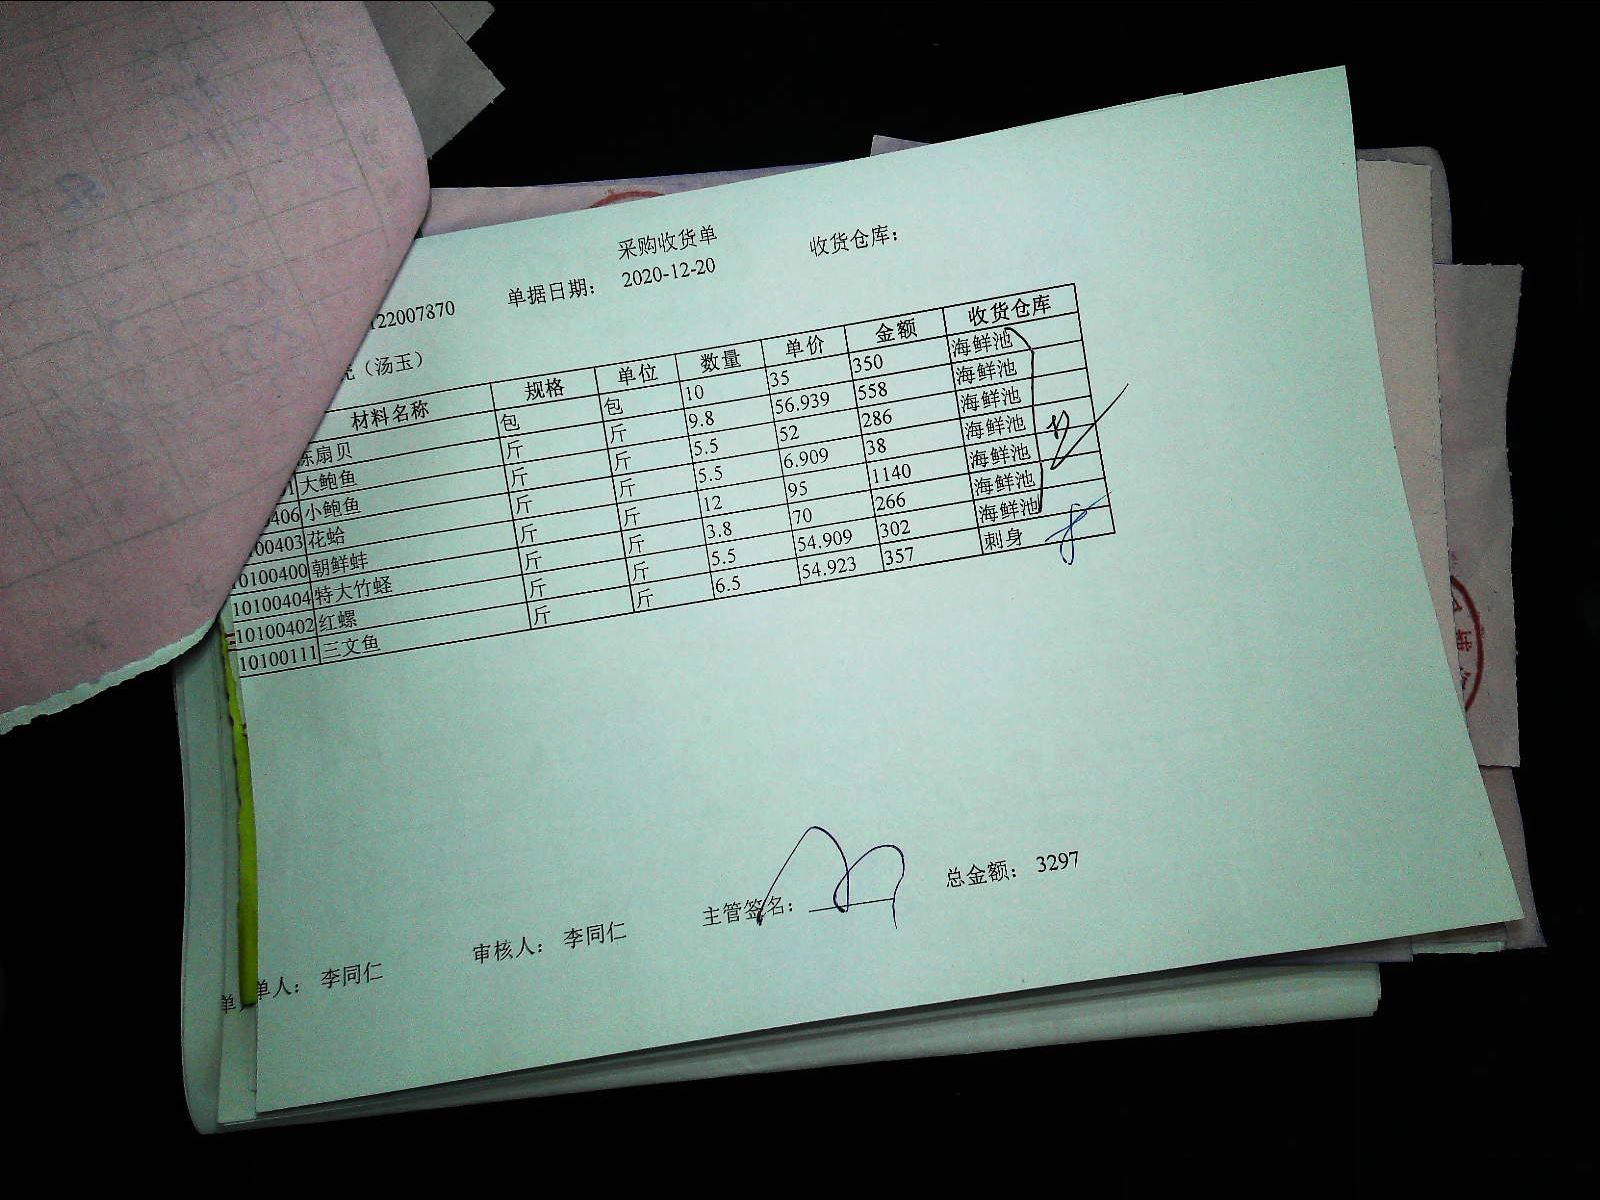 采购收货单
122007870 单据日期： 2020-12-20 收货仓库：
（汤玉）
材料名称 规格 单位 数量 单价 金额 收货仓库
冻扇贝 包 包 10 35 350 海鲜池
大鲍鱼 斤 斤 9.8 56.939 558 海鲜池
406 小鲍鱼 斤 斤 5.5 52 286 海鲜池
00403 花蛤 斤 斤 5.5 6.909 38 海鲜池
10100400 朝鲜蚌 斤 斤 12 95 1140 海鲜池
10100404 特大竹蛏 斤 斤 3.8 70 266 海鲜池
10100402 红螺 斤 斤 5.5 54.909 302 海鲜池
10100111 三文鱼 斤 斤 6.5 54.923 357 刺身
单人： 李同仁 审核人： 李同仁 主管签名： 总金额： 3297